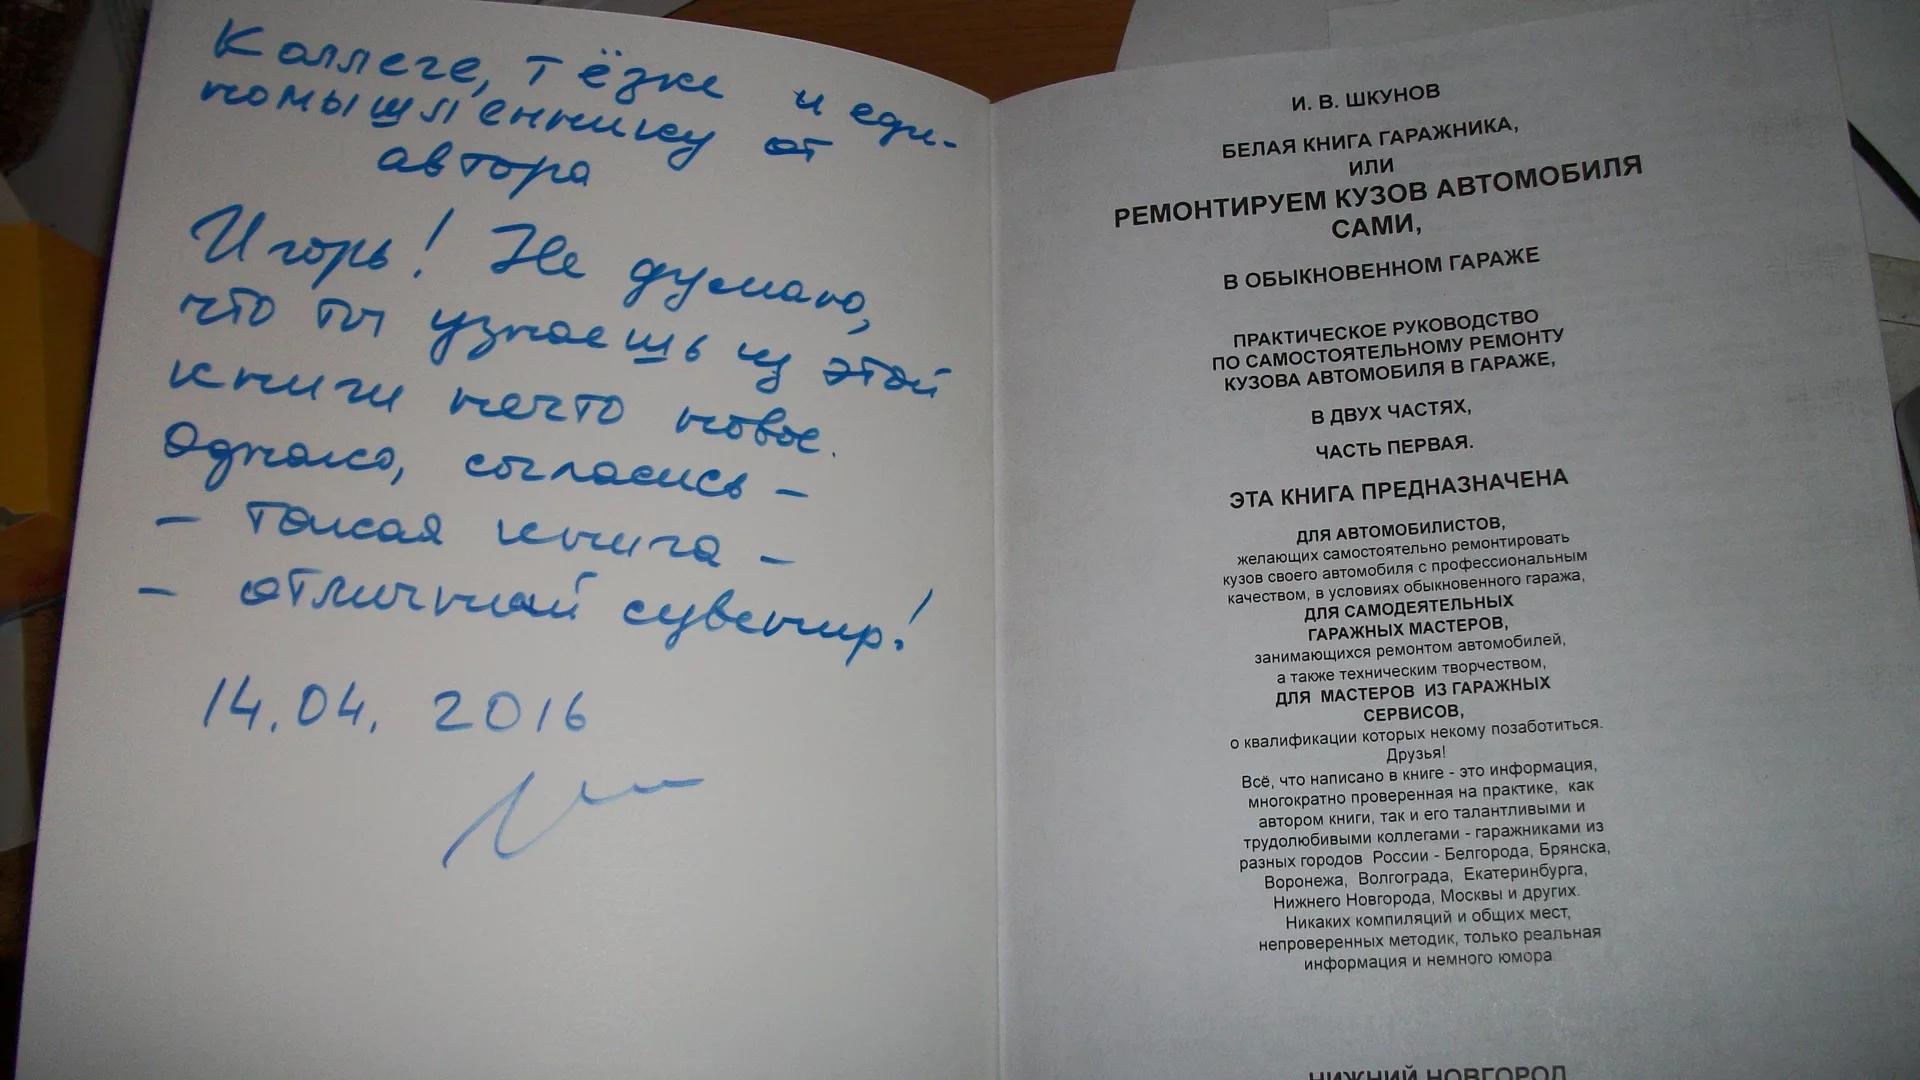 Коллеге, тёзке и еди-
номышленнику от
автора
Игорь! Не думаю,
что ты узнаешь из этой
книги нечто новое.
Однако, согласись -
- такая книга -
- отличный сувенир!
14.04. 2016
И. В. ШКУНОВ
БЕЛАЯ КНИГА ГАРАЖНИКА,
ИЛИ
РЕМОНТИРУЕМ КУЗОВ АВТОМОБИЛЯ
САМИ,
В ОБЫКНОВЕННОМ ГАРАЖЕ
ПРАКТИЧЕСКОЕ РУКОВОДСТВО
ПО САМОСТОЯТЕЛЬНОМУ РЕМОНТУ
КУЗОВА АВТОМОБИЛЯ В ГАРАЖЕ,
В ДВУХ ЧАСТЯХ,
ЧАСТЬ ПЕРВАЯ.
ЭТА КНИГА ПРЕДНАЗНАЧЕНА
ДЛЯ АВТОМОБИЛИСТОВ,
желающих самостоятельно ремонтировать
кузов своего автомобиля с профессиональным
качеством, в условиях обыкновенного гаража,
ДЛЯ САМОДЕЯТЕЛЬНЫХ
ГАРАЖНЫХ МАСТЕРОВ,
занимающихся ремонтом автомобилей,
а также техническим творчеством,
ДЛЯ МАСТЕРОВ ИЗ ГАРАЖНЫХ
СЕРВИСОВ,
о квалификации которых некому позаботиться.
Друзья!
Всё, что написано в книге - это информация,
многократно проверенная на практике, как
автором книги, так и его талантливыми и
трудолюбивыми коллегами - гаражниками из
разных городов России - Белгорода, Брянска,
Воронежа, Волгограда, Екатеринбурга,
Нижнего Новгорода, Москвы и других.
Никаких компиляций и общих мест,
непроверенных методик, только реальная
информация и немного юмора
НИЖНИЙ НОВГОРОД